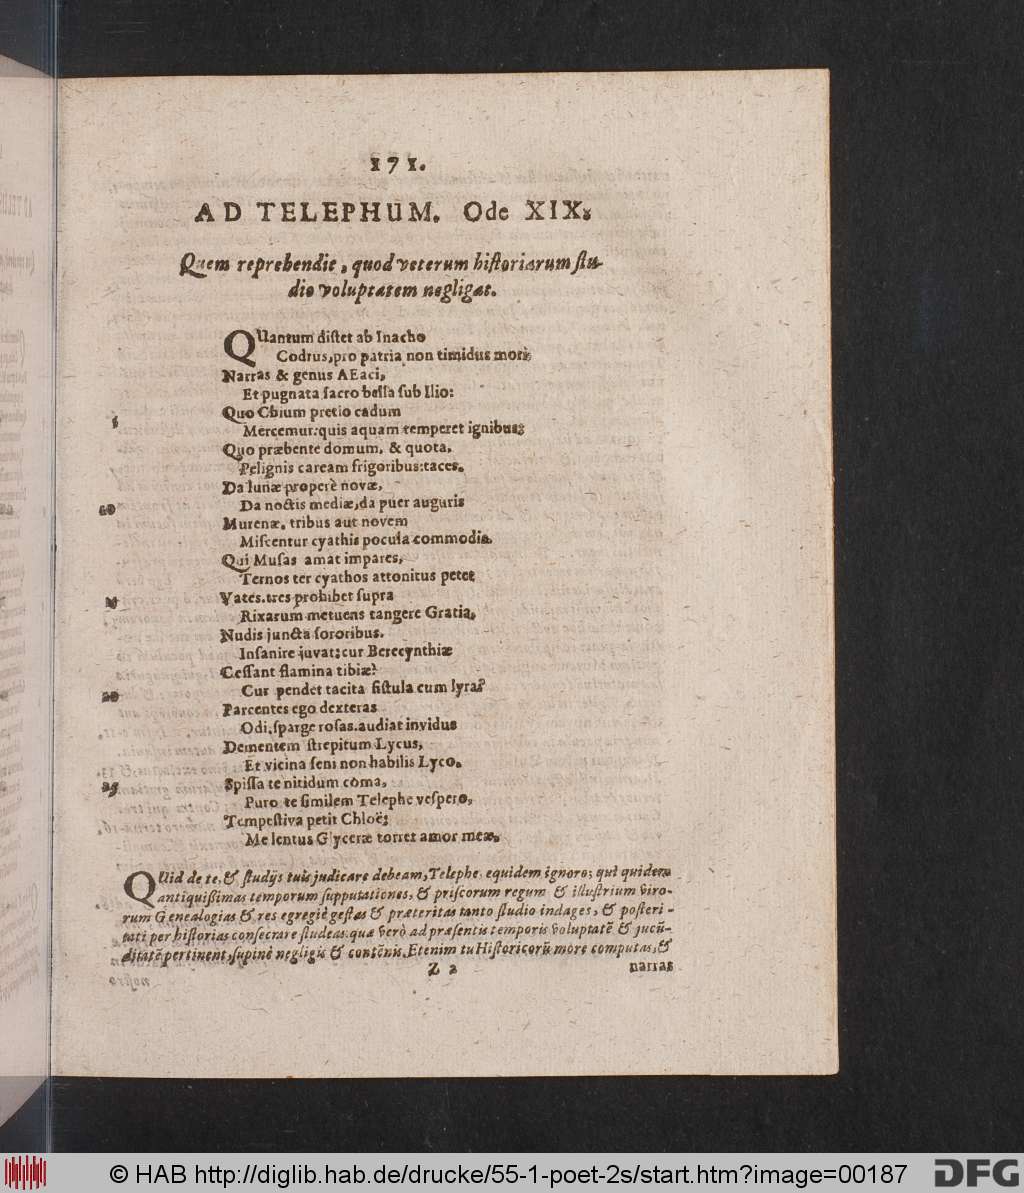 171.
AD TELEPHUM. Ode XIX.
Quem reprehendit, quod veterum historiarum stu-
dio voluptatem negligat.
QUantum distet ab Inacho
Codrus, pro patria non timidus mori,
Narras & genus AEaci,
Et pugnata sacro bella sub Ilio:
5 Quo Chium pretio cadum
Mercemur: quis aquam temperet ignibus;
Quo præbente domum, & quota,
Pelignis caream frigoribus: taces.
Da lunæ properè novæ,
10 Da noctis mediæ, da puer auguris
Murenæ. tribus aut novem
Miscentur cyathis pocula commodis.
Qui Musas amat impares,
Ternos ter cyathos attonitus petet
15 Vates. tres prohibet supra
Rixarum metuens tangere Gratia,
Nudis juncta sororibus.
Insanire juvat: cur Berecynthiæ
Cessant flamina tibiæ?
20 Cur pendet tacita fistula cum lyra?
Parcentes ego dexteras
Odi. sparge rosas. audiat invidus
Dementem strepitum Lycus,
Et vicina seni non habilis Lyco.
25 Spissa te nitidum coma,
Puro te similem Telephe vespero,
Tempestiva petit Chloë:
Me lentus Glyceræ torret amor meæ.
QUid de te, & studijs tuis judicare debeam, Telephe equidem ignoro; qui quidem
antiquissimas temporum supputationes, & priscorum regum & illustrium viro-
rum Genealogias & res egregiè gestas & præteritas tanto studio indages, & posteri-
tati per historias consecrare studeas. quæ verò ad præsentis temporis voluptatẽ & jucũ-
ditatẽ pertinent, supinè negligis & contẽnis. Etenim tu Historicorũ more computas, &
Z 2 narras
© HAB http://diglib.hab.de/drucke/55-1-poet-2s/start.htm?image=00187
DFG